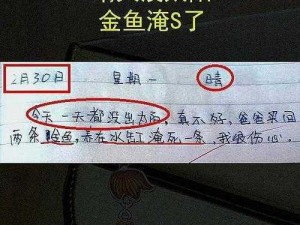 金鱼淹S了
2月30日 星期一 晴
今天一天都没出太阳，真不好，爸爸买回
两条鲶鱼，养在水缸淹死一条，我很伤心。